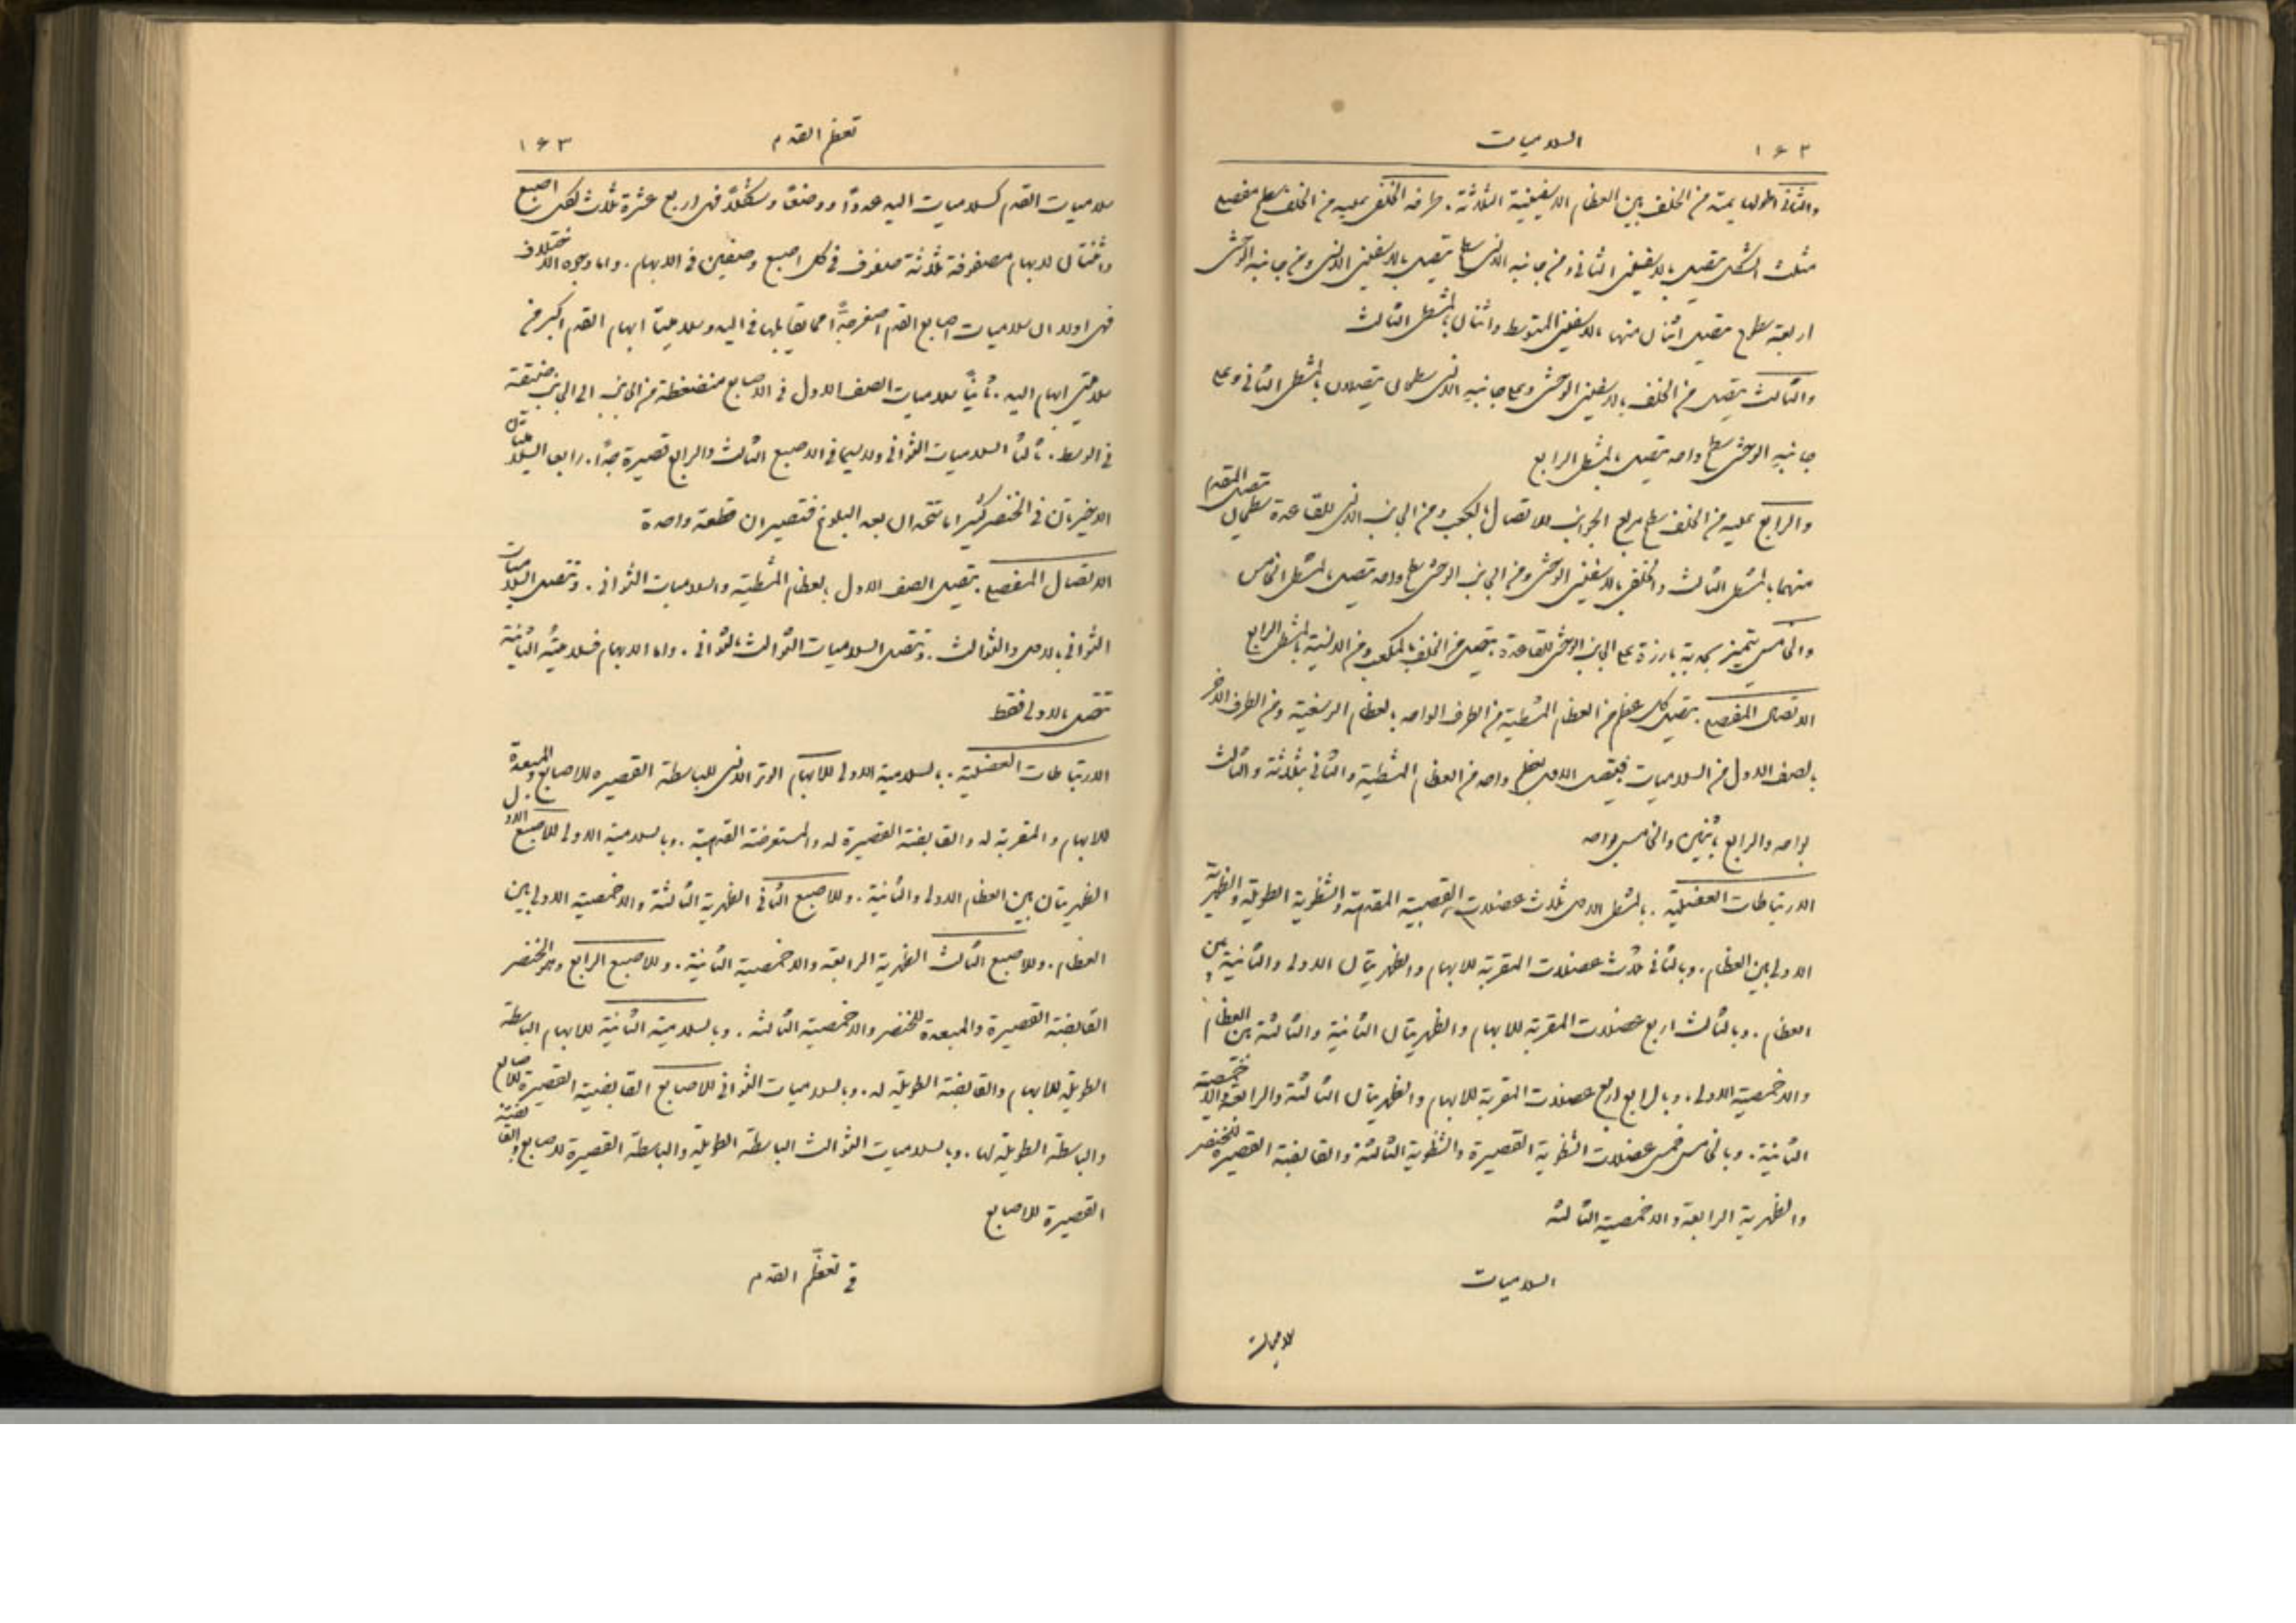 السلاميات ١٦٢
والثاني اطولها يمتد من الخلف بين العظام الاسفينية الثلاثة. طرفه الخلفي عليه من الخلف سطح مفصلي
مثلث الشكل يتصل بالاسفيني الثاني ومن جانبه الانسي سطح يتصل بالاسفيني الانسي ومن جانبه الوحشي
اربعة سطوح يتصل اثنان منها بالاسفيني المتوسط واثنان بالمشطي الثالث
والثالث يتصل من الخلف بالاسفيني الوحشي وعلى جانبه الانسي سطحان يتصلان بالمشطي الثاني وعلى
جانبه الوحشي سطح واحد يتصل بالمشطي الرابع
والرابع عليه من الخلف سطح مربع الجوانب للاتصال بالمكعب ومن الجانب الانسي للقاعدة سطحان يتصل المقدم
منهما بالمشطي الثالث والخلفي بالاسفيني الوحشي ومن الجانب الوحشي سطح واحد يتصل بالمشطي الخامس
والخامس يتميز بحدبة بارزة على الجانب الوحشي للقاعدة يتصل من الخلف بالمكعب ومن الانسية بالمشطي الرابع
الاتصال المفصلي. يتصل كل عظم من العظام المشطية من الطرف الواحد بالعظام الرسغية ومن الطرف الاخر
بالصف الاول من السلاميات فيتصل الاول بعظم واحد من العظام المشطية والثاني بثلاثة والثالث
بواحد والرابع باثنين والخامس بواحد
الارتباطات العضلية. بالمشطي الاول ثلاث عضلات القصبية المقدمة والشظوية الطويلة والظهرية
الاولى بين العظام. وبالثاني ثلاث عضلات المقربة للابهام والظهريتان الاولى والثانية بين
العظام. وبالثالث اربع عضلات المقربة للابهام والظهريتان الثانية والثالثة بين العظام
والاخمصية الاولى. وبالرابع اربع عضلات المقربة للابهام والظهريتان الثالثة والرابعة والاخمصية
الثانية. وبالخامس خمس عضلات الشظوية القصيرة والشظوية الثالثة والقابضة القصيرة للخنصر
والظهرية الرابعة والاخمصية الثالثة
السلاميات
تعظم القدم ١٦٣
سلاميات القدم كسلاميات اليد عددًا ووضعًا وشكلًا فهي اربع عشرة ثلاث لكل اصبع
واثنتان للابهام مصفوفة ثلاثة صفوف في كل اصبع وصفين في الابهام. واما وجوه الاختلاف
فهي اولا ان سلاميات اصابع القدم اصغر جدًّا مما يقابلها في اليد وسلاميتا ابهام القدم اكبر من
سلاميتي ابهام اليد. ثانيًا سلاميات الصف الاول في الاصابع منضغطة من الجانب الى الجانب ضيقة
في الوسط. ثالثًا السلاميات الثواني ولا سيما في الاصبع الثالث والرابع قصيرة جدًّا. رابعا السلاميتان
الاخيرتان في الخنصر كثيرا ما تتحدان بعد البلوغ فتصيران قطعة واحدة
الاتصال المفصلي. يتصل الصف الاول بالعظام المشطية والسلاميات الثواني. وتتصل السلاميات
الثواني بالاول والثوالث. وتتصل السلاميات الثوالث بالثواني. واما الابهام فسلاميته الثانية
تتصل بالاولى فقط
الارتباطات العضلية. بالسلامية الاولى للابهام الوتر الانسي للباسطة القصيرة للاصابع والمبعدة
للابهام والمقربة له والقابضة القصيرة له والمستعرضة القدمية. وبالسلامية الاولى للاصبع الاول
الظهريتان بين العظام الاولى والثانية. وللاصبع الثاني الظهرية الثالثة والاخمصية الاولى بين
العظام. وللاصبع الثالث الظهرية الرابعة والاخمصية الثانية. وللاصبع الرابع وهو الخنصر
القابضة القصيرة والمبعدة للخنصر والاخمصية الثالثة. وبالسلامية الثانية للابهام الباسطة
الطويلة للابهام والقابضة الطويلة له. وبالسلاميات الثواني للاصابع القابضة القصيرة للاصابع
والباسطة الطويلة لها. وبالسلاميات الثوالث الباسطة الطويلة والباسطة القصيرة للاصابع والقابضة
القصيرة للاصابع
في تعظّم القدم